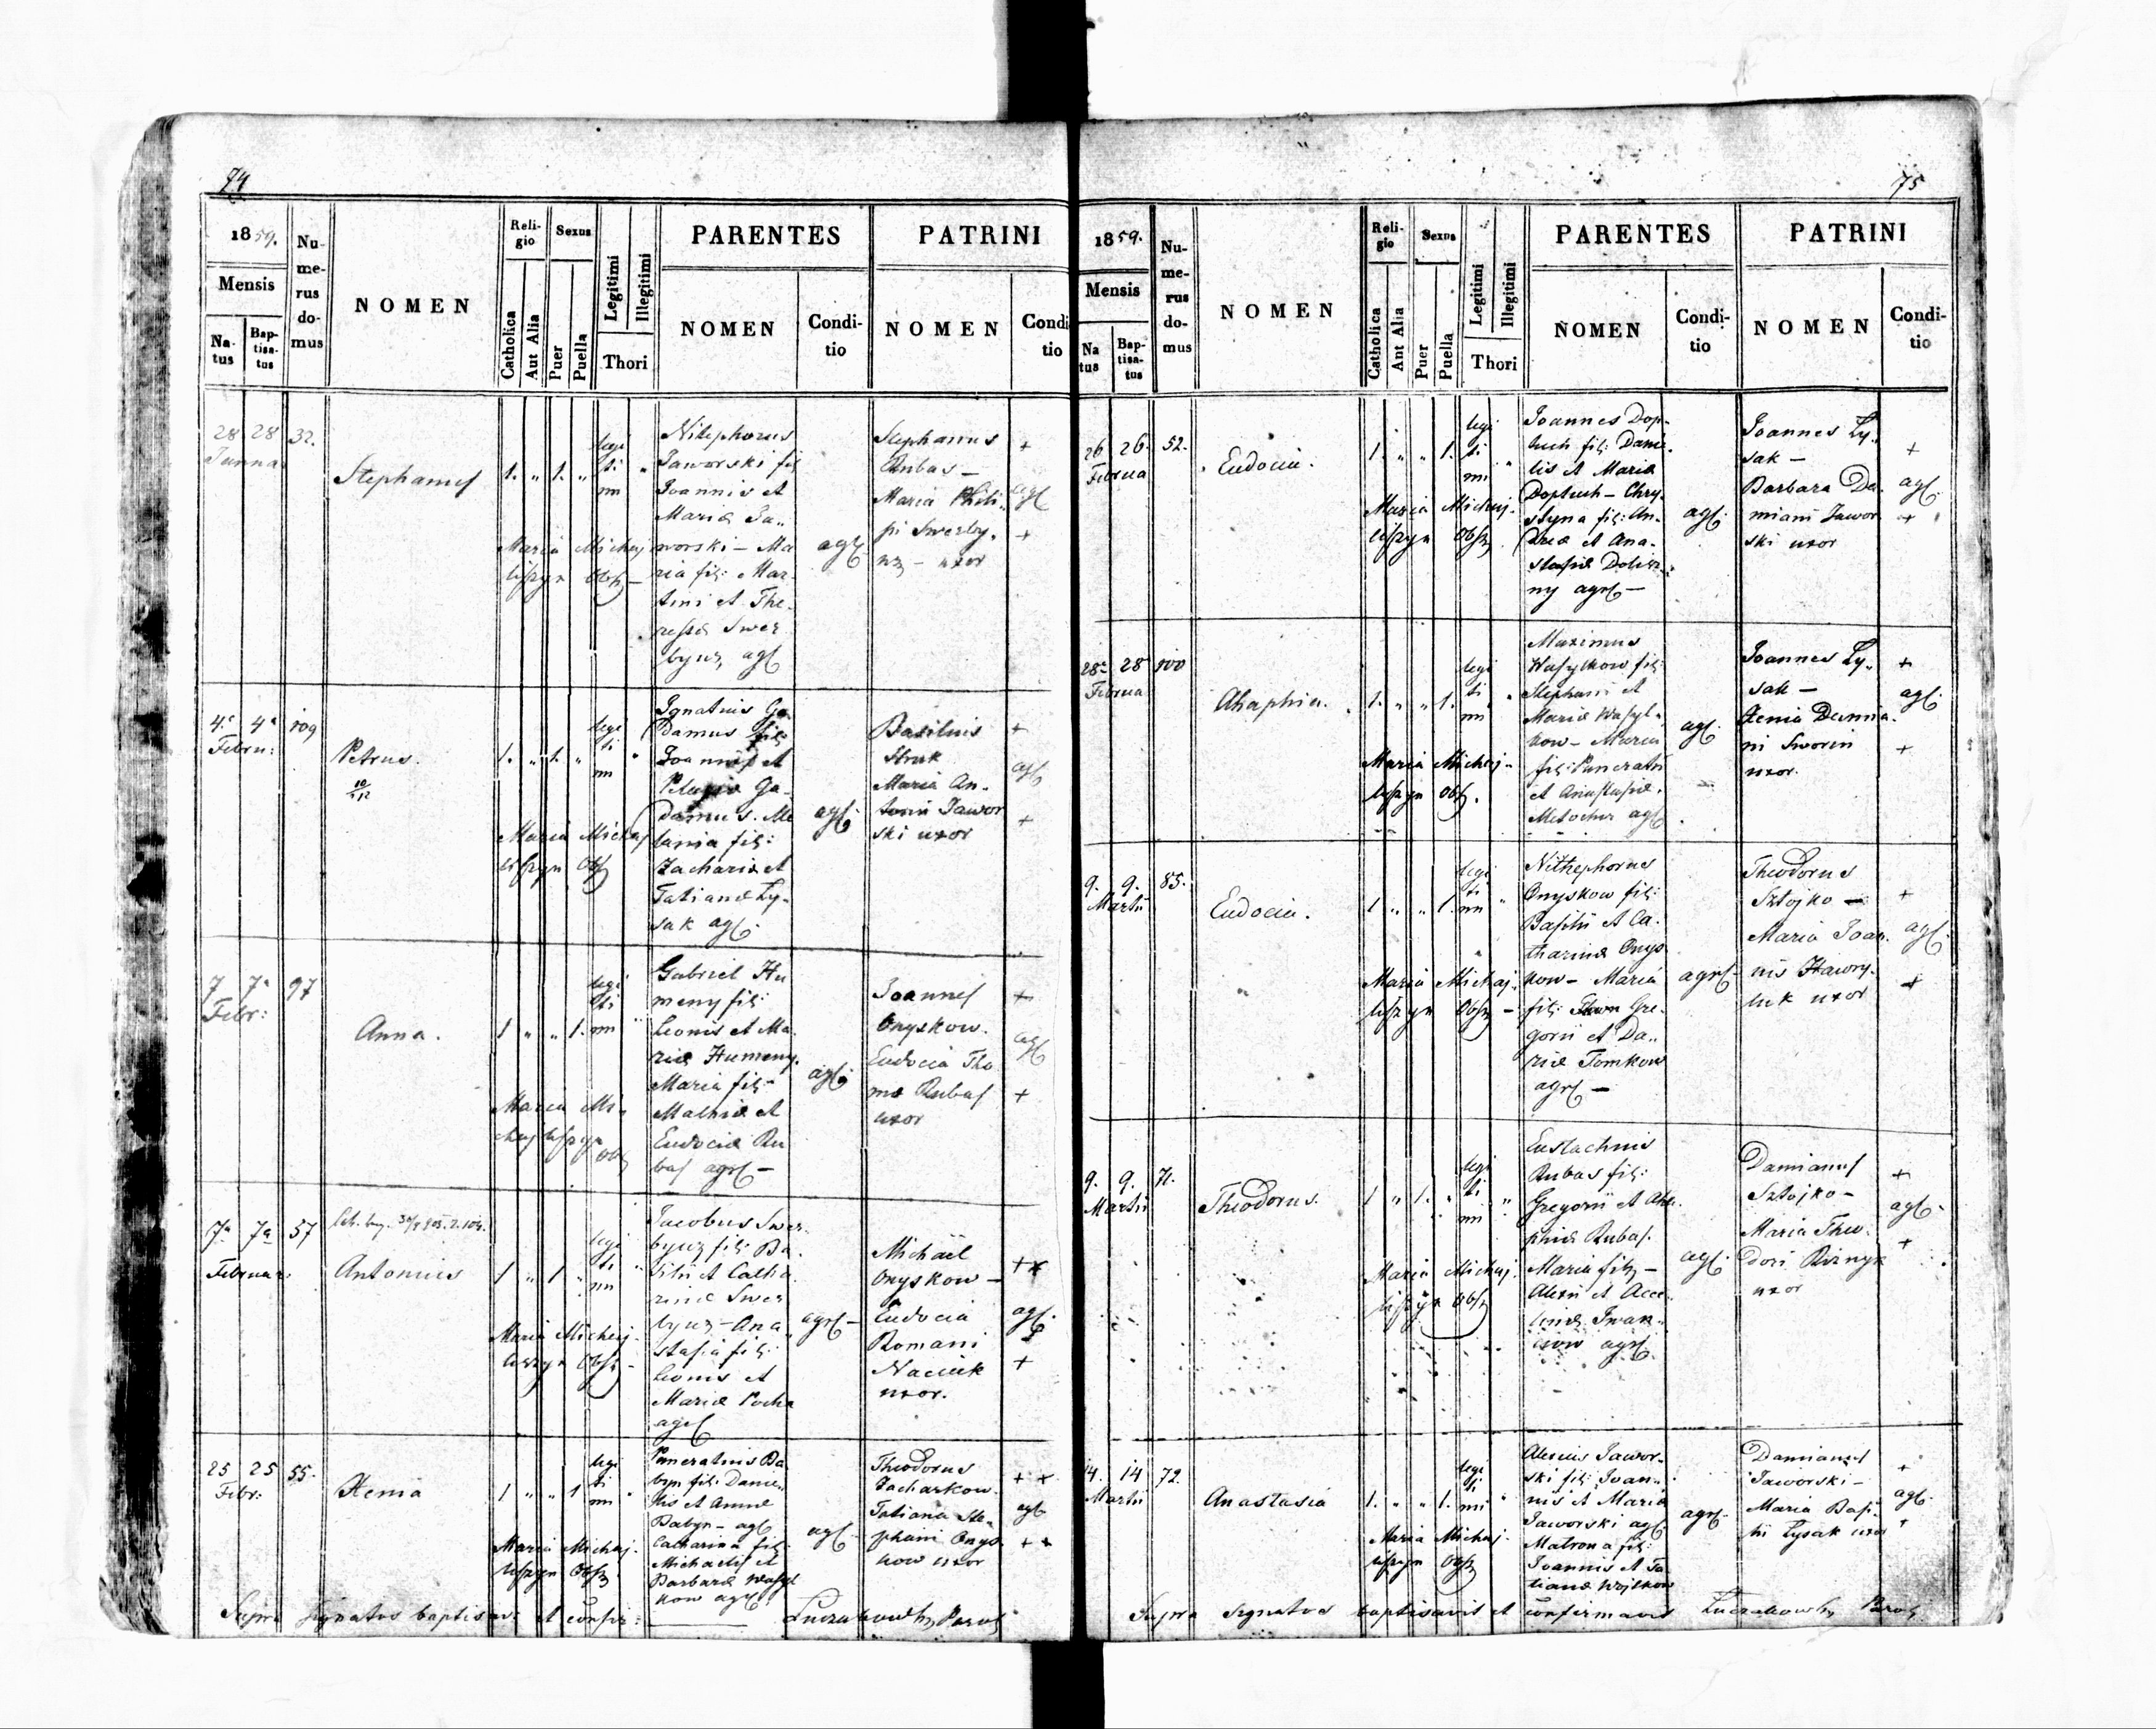 74
1859.
Mensis
Na-
tus
Bap-
tisa-
tus
Nu-
me-
rus
do-
mus
NOMEN
Reli-
gio
Catholica
Aut Alia
Sexus
Puer
Puella
Legitimi
Illegitimi
Thori
PARENTES
NOMEN
Condi-
tio
PATRINI
NOMEN
Condi
tio
28 28 32.
Stephanus
1. " 1. "
legi
ti "
mi
Nikephorus
Jaworski fil
Joannis et
Mariæ Ja..
worski - Ma
ria fil: Mar
tini et The.
ressæ Swer
byuz, agl
agl
Stephanus
Rubas -
Maria Phili..
pi Swerby.
uz - uxor
+
agl
+
Maria Michaj
liszyn Obst -
4. 4 109
Febru:
Petrus.
1. " 1. "
legi
ti "
mi
Ignatius Ga
damus fil:
Joannis et
Pelagiæ Ga-
damus. Me
lania fil:
Zachariæ et
Tatianæ Ly-
sak agl.
agl.
Basilius
Struk
Maria An-
tonii Jawor
ski uxor
+
agl
+
Maria Michaj
liszyn Obst
7 7 97
Febr:
Anna.
1 " " 1.
legi
ti "
mi
Gabriel Hu
meny fil:
Leonis et Ma.
riæ Humeny.
Maria fil:
Mathiæ et
Eudociæ Ru
bas agrl -
agl.
Joannes
Onyskow.
Eudocia Tho
mæ Rubas
uxor
+
agl
+
Maria Mi-
chajliszyn
Obst
7 7 57
Februar:
Antonius
1 " 1 "
legi
ti "
mi
Jacobus Swer.
byuz fil: Ba.
silii et Catha.
rinæ Swer
byuz - Ana
stasia fil:
Leonis et
Mariæ Pocha
agrl
agrl -
Michaël
Onyskow -
Eudocia
Romani
Naciuk
uxor.
+
agl.
+
Maria Michaj-
liszyn Obst -
25 25 55.
Febr:
Xenia
1 " " 1
legi
ti "
mi
Pancratius Ba
byn fil: Danie
lis et Annæ
Babyn - agl
Catharina fil:
Michaelis et
Barbaræ Wasyl
kow agl.
agl.
Theodorus
Zacharkow.
Tatiana Ste-
phani Onys
kow uxor
+
agl
+
Maria Michaj-
liszyn Obst
Supra signatos baptisav: et confir:
75
1859.
Mensis
Na
tus
Bap-
tisa-
tus
Nu-
me-
rus
do-
mus
NOMEN
Reli-
gio
Catholica
Aut Alia
Sexus
Puer
Puella
Legitimi
Illegitimi
Thori
PARENTES
NOMEN
Condi-
tio
PATRINI
NOMEN
Condi-
tio
26 26. 52.
Februa
Eudocia.
1. " " 1.
legi
ti "
mi
Joannes Dop-
tuch fil: Danie-
lis et Mariæ
Doptuch - Chry-
styna fil: An-
dreæ et Ana-
stasiæ Dolisz-
ny agrl -
agl.
Joannes Ly..
sak -
Barbara Da.
miani Jawor
ski uxor
+
agl.
+
Maria Michaj-
liszyn Obst.
28 28 100
Februa
Ahaphia.
1. " " 1.
legi
ti "
mi
Maximus
Wasylkow fil:
Stephani et
Mariæ Wasyl-
kow - Maria
fil: Pancratii
et Anastasiæ
Metocher agl.
agl.
Joannes Ly..
sak -
Xenia Damia.
ni Sworin
uxor.
+
agl.
+
Maria Michaj-
liszyn Obst.
9. 9. 85.
Martii
Eudocia.
1 " " 1.
legi
ti "
mi
Nikephorus
Onyskow fil:
Basilii et Ca-
tharinæ Onys
kow - Maria
fil: Gre-
gorii et Da..
riæ Tomkow
agrl -
agrl -
Theodorus
Sztojko -
Maria Joan.
nis Hawry-
luk uxor
+
agl.
+
Maria Michaj-
liszyn Obst -
9. 9. 71.
Martii
Theodorus.
1 " 1. "
legi
ti "
mi
Eustachius
Rubas fil:
Gregorii et Aha.
phiæ Rubas.
Maria fil: -
Alexii et Ace
liniæ Iwan-
ciow agrl.
agl.
Damianus
Sztojko -
Maria Theo-
dori Riznyk
uxor
+
agl.
+
Maria Michaj-
liszyn Obst
14. 14 72.
Martii
Anastasia
1. " " 1.
legi
ti "
mi
Alexius Jawor-
ski fil: Joan-
nis et Mariæ
Jaworski agl
Matrona fil:
Joannis et Ta
tianæ Wojtkow
agrl -
Damianus
Jaworski -
Maria Basi-
lii Lysak uxor
+
agl.
+
Maria Michaj-
liszyn Obst
Supra signatos baptisavit et confirmavit